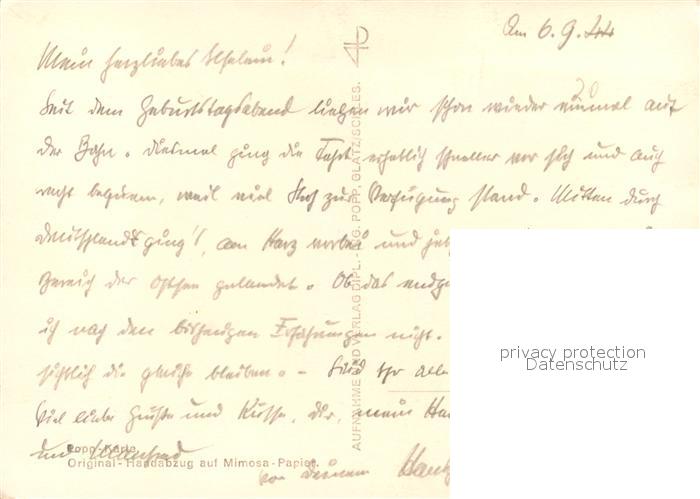 Am 6. 9. 44
Mein herzliebes
Seit dem Geburtstagsabend liegen wir schon wieder einmal auf
der Bahn. Diesmal ging die Fahrt erheblich schneller vor sich und auch
recht bequem, weil viel zur Verfügung stand. Mitten durch
Deutschland ging's, am Harz vorbei und
Bereich der Ostsee gelandet. Ob das
ich nach den bisherigen Erfahrungen nicht.
die gleiche bleiben. - Seid Ihr alle
Viel liebe Grüße und Küsse, Dir, mein
und Manfred
von Deinem
AUFNAHME UND VERLAG DIPL.-ING. POPP, GLATZ/SCHLES.
Popp-Karte
Original-Handabzug auf Mimosa-Papier.
privacy protection
Datenschutz